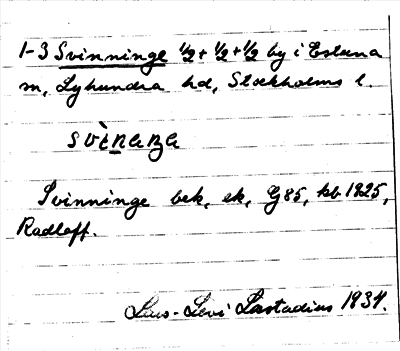 1-3 Svinninge ½ + ½ + ½ by i Estuna
sn, Lyhundra hd, Stockholms l.
Svinninge bek, ek, G85, kb 1825,
Radloff.
Lars-Levi Læstadius 1934.